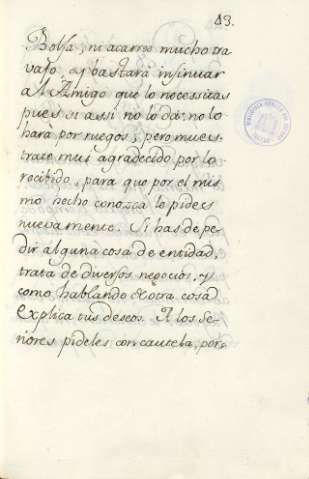 43.
Bolsa, ni acarree mucho tra
vajo. y bastará insinuar
al Amigo que lo necessitas
pues si assi no lo dá: no lo
hará por ruegos; pero mues-
trate mui agradecido por lo
recibido, para que por el mis
mo hecho conozca lo pides
nuevamente. Si has de pe-
dir alguna cosa de entidad,
trata de diversos negocios. y
como hablando de otra cosa
explica tus deseos. A los Se-
ñores pideles con cautela, por-